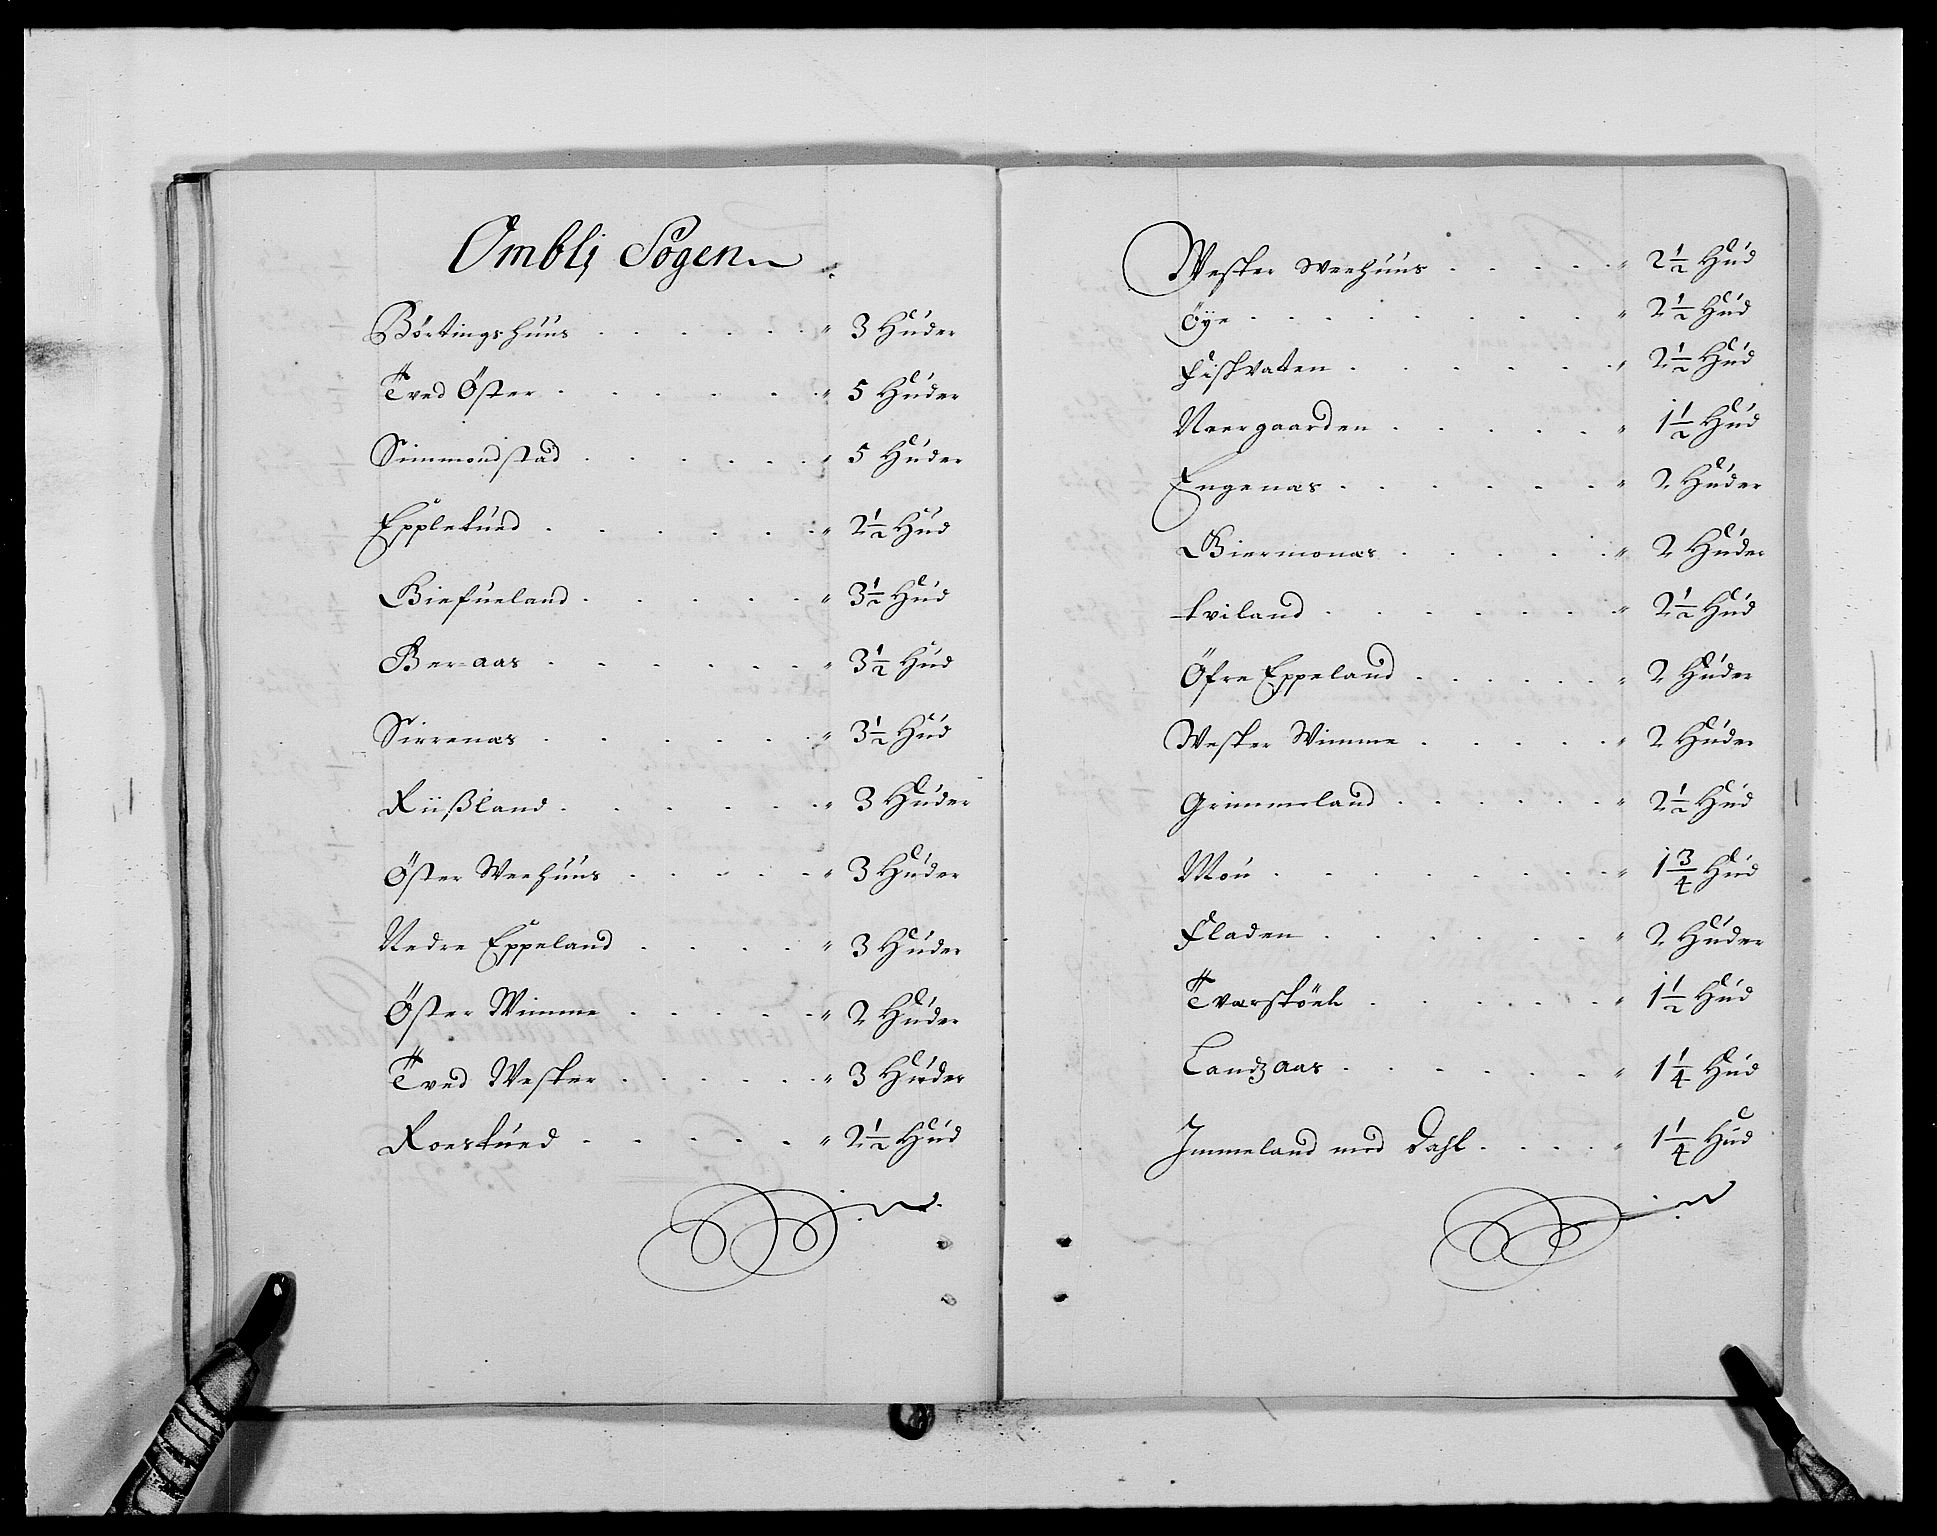 Ombli Sogen
Börtingshuus . . . . . " 3 Huder
Tved Öster . . . . . " 5 Huder
Simmonstad . . . . . " 5 Huder
Epplekued . . . . . " 2 1/2 Hud
Biefueland . . . . . " 3 1/2 Hud
Ber-aas . . . . . " 3 1/2 Hud
Sirrenæs . . . . . " 3 1/2 Hud
Riißland . . . . . " 3 Huder
Öster Weehuus . . . . . " 3 Huder
Nedre Eppeland . . . . " 3 Huder
Öster Wimme . . . . . " 2 Huder
Tved Wester . . . . . " 3 Huder
Roeskued . . . . . " 2 1/2 Hud
Wester Weehuus . . . . . " 2 1/2 Hud
Öye . . . . . . . " 2 1/2 Hud
Fiskvatten . . . . . . " 2 1/2 Hud
Neergaarden . . . . . " 1 1/2 Hud
Engenæs . . . . . . " 2 Huder
Biermonæs . . . . . " 2 Huder
Eviland . . . . . . " 2 1/2 Hud
Öfre Eppeland . . . . . " 2 Huder
Wester Wimme . . . . . " 2 Huder
Grimmeland . . . . . " 2 1/2 Hud
Mou . . . . . . . " 1 3/4 Hud
Fladen . . . . . . " 2 Huder
Tværstöel . . . . . " 1 1/2 Hud
Landzaas . . . . . . " 1 1/4 Hud
Immeland med Dahl . . . . " 1 1/4 Hud